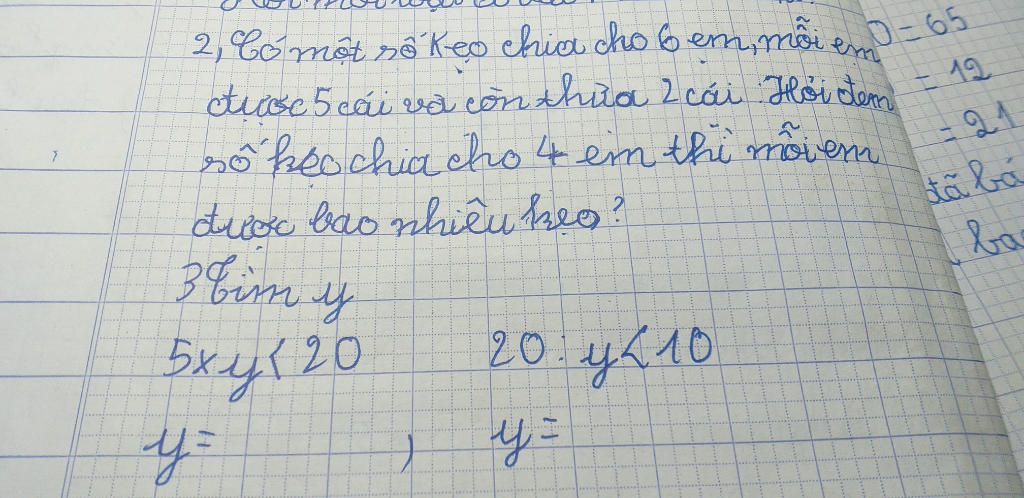 2, Có một số kẹo chia cho 6 em, mỗi em
được 5 cái và còn thừa 2 cái. Hỏi đem
số kẹo chia cho 4 em thì mỗi em
được bao nhiêu kẹo?
3 Tìm y
5 x y < 20 20 : y < 10
y = , y =
= 65
= 12
= 21
đã bá